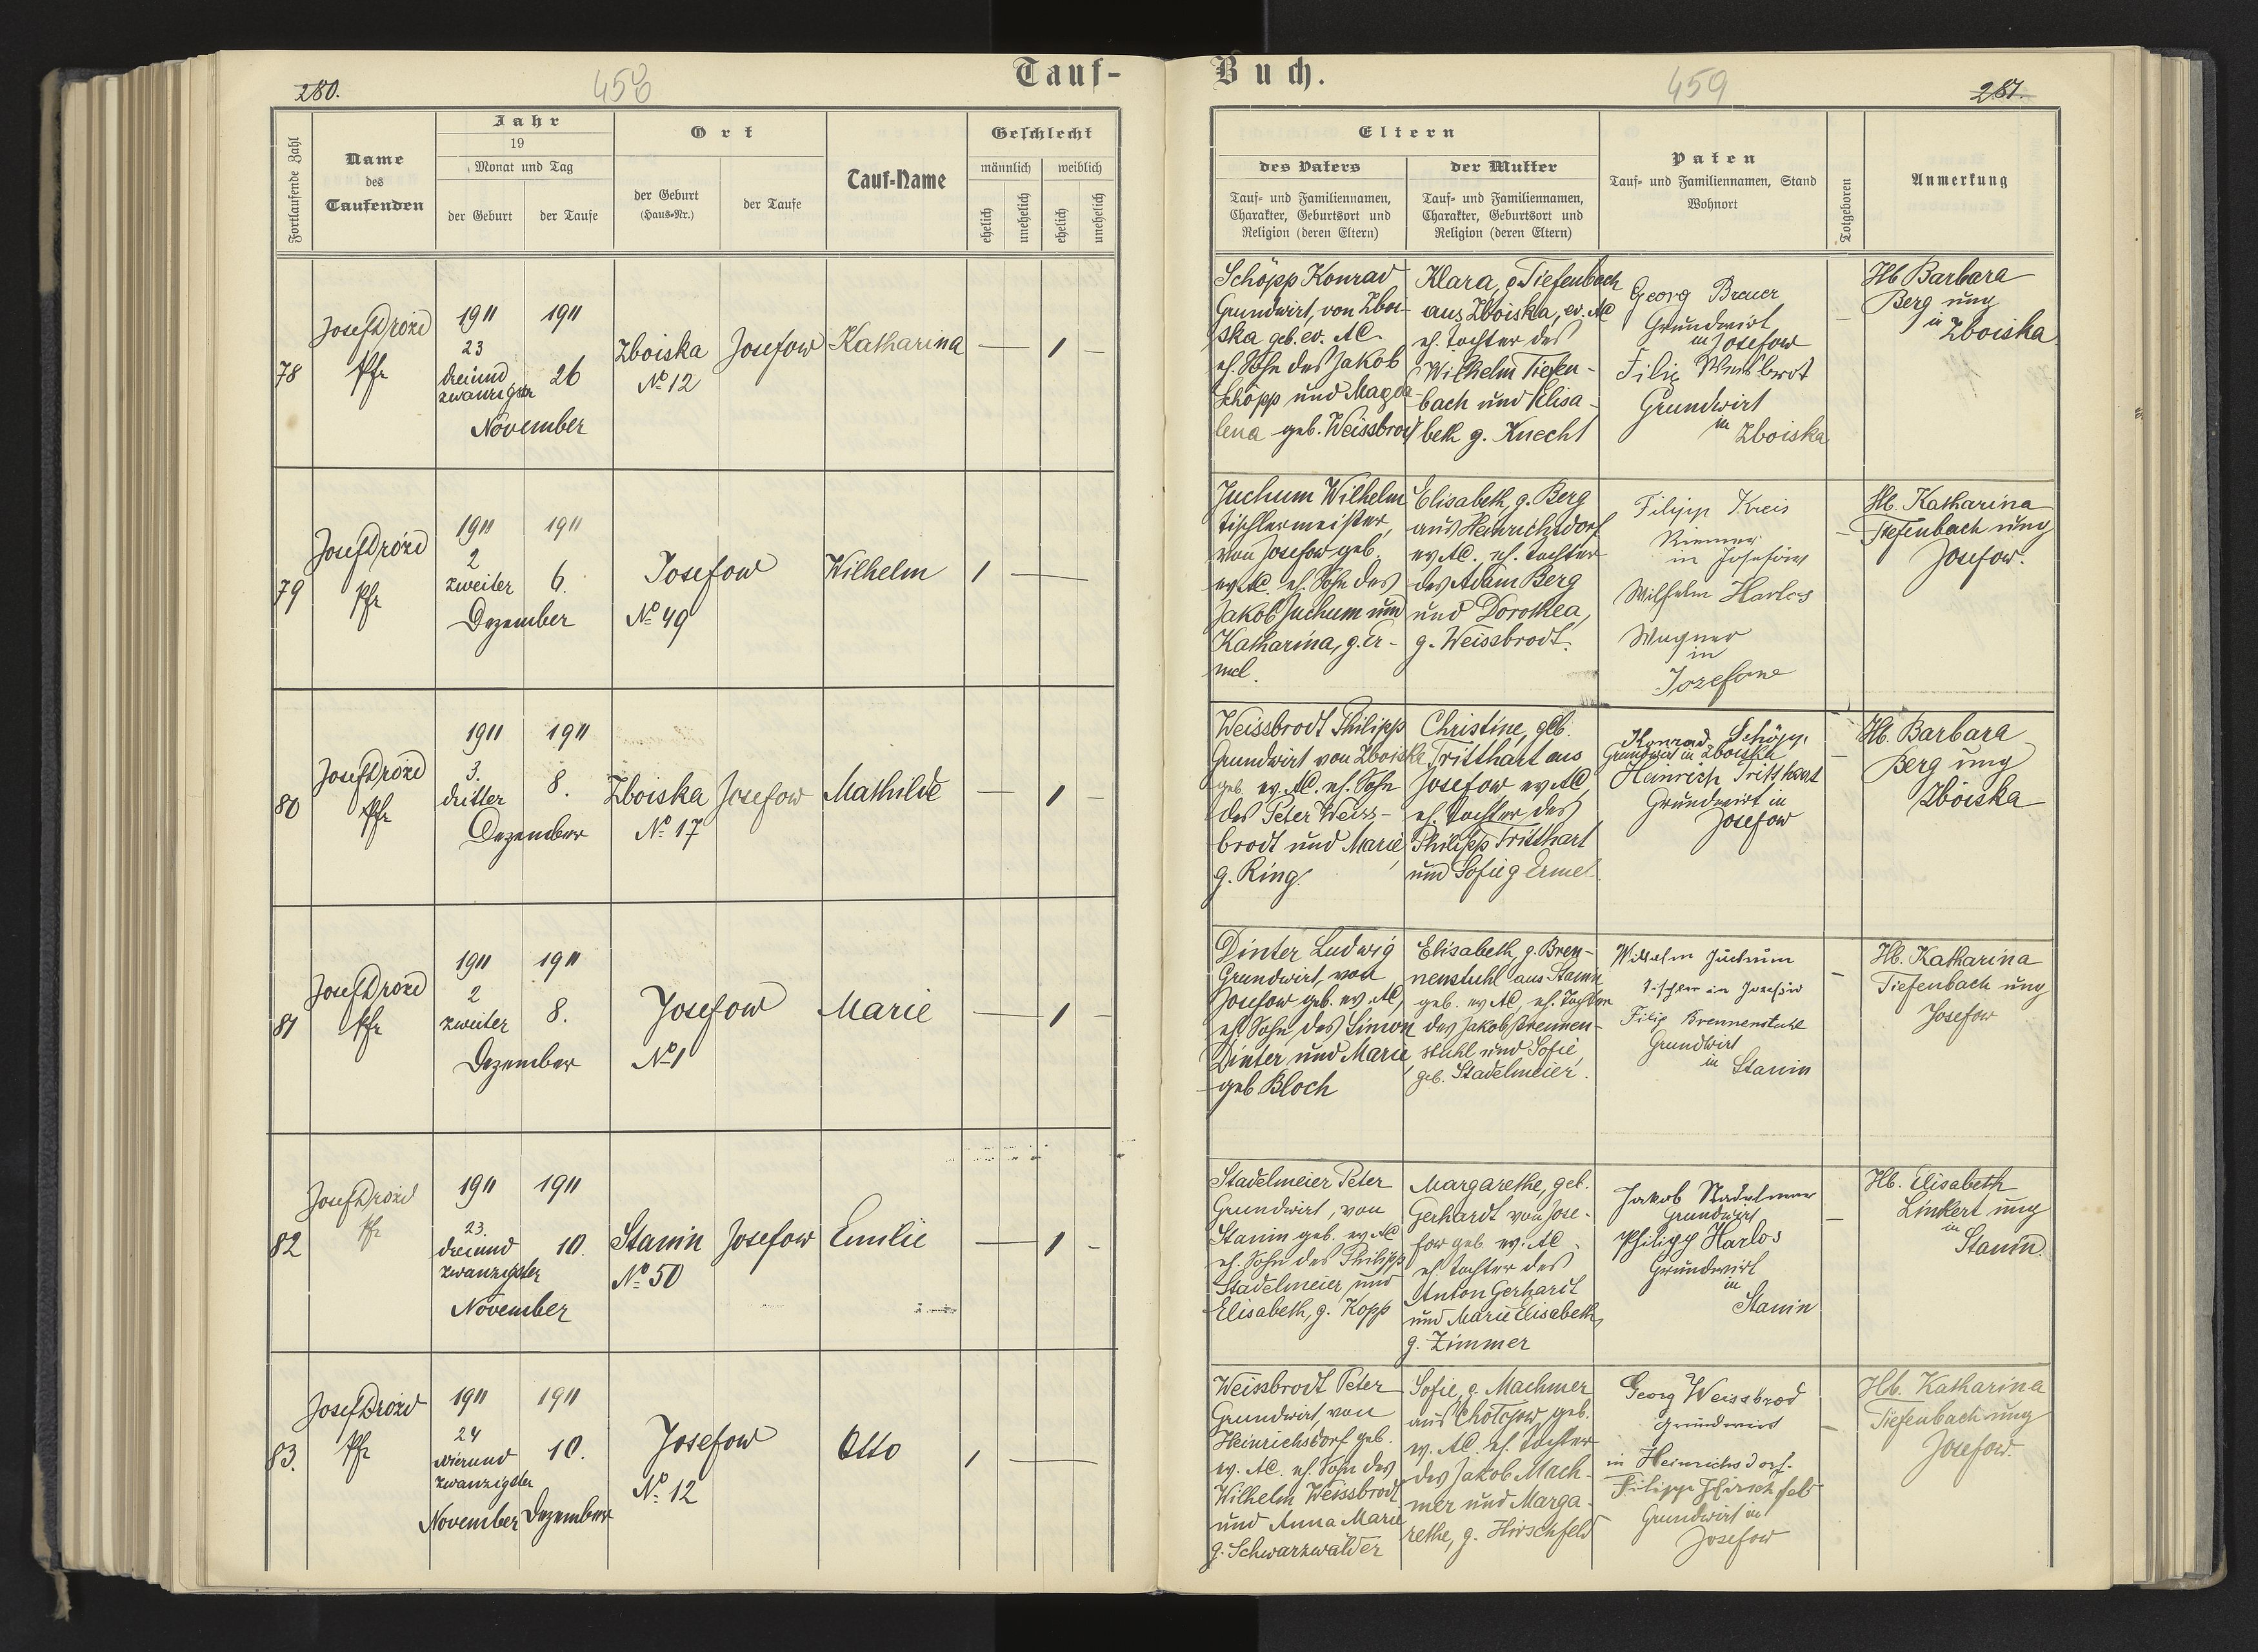 280.
458
Tauf-
Fortlaufende Zahl
Name
des
Taufenden
Jahr
19
Monat und Tag
der Geburt
der Taufe
Ort
der Geburt
(Haus-Nr.)
der Taufe
Tauf-Name
Geschlecht
männlich
weiblich
ehelich
unehelich
ehelich
unehelich
78
Josef Drozd
Pfr
1911
23
dreiund
zwanzigster
November
1911
26
Zboiska
No 12
Josefow
Katharina
— 1 —
79
Josef Drozd
Pfr
1911
2
zweiter
Dezember
1911
6.
Josefow
No 49
Wilhelm
1 —
80
Josef Drozd
Pfr
1911
3.
dritter
Dezember
1911
8.
Zboiska
No 17
Josefow
Mathilde
— 1 —
81
Josef Drozd
Pfr
1911
2
zweiter
Dezember
1911
8.
Josefow
No 1
Marie
— 1 —
82
Josef Drozd
Pfr
1911
23.
dreiund
zwanzigster
November
1911
10.
Stanin
No 50
Josefow
Emilie
— 1 –
83.
Josef Drozd
Pfr
1911
24
vierund
zwanzigster
November
1911
10.
Dezember
Josefow
No 12
Otto
1 —
Buch.
459
281.
Eltern
des Vaters
Tauf- und Familiennamen,
Charakter, Geburtsort und
Religion (deren Eltern)
der Mutter
Tauf- und Familiennamen,
Charakter, Geburtsort und
Religion (deren Eltern)
Paten
Tauf- und Familiennamen, Stand
Wohnort
Totgeboren
Anmerkung
Schöpp Konrad
Grundwirt, von Zboi-
ska geb. ev. AC
eh. Sohn des Jakob
Schöpp und Magda-
lena geb. Weissbrod
Klara, g. Tiefenbach
aus Zboiska, ev. AC
eh. Tochter des
Wilhelm Tiefen-
bach und Elisa-
beth g. Knecht
Georg Breuer
Grundwirt
in Josefow
Filip Weisbrot
Grundwirt
in Zboiska
—
Hb Barbara
Berg ung
in Zboiska
Juchum Wilhelm
Tischlermeister,
von Josefow geb.
ev. AC. eh. Sohn des
Jakob Juchum und
Katharina, g. Er-
mel.
Elisabeth, g. Berg
aus Heinrichsdorf
ev AC., eh. Tochter
des Adam Berg
und Dorothea,
g. Weissbrodt.
Filipp Kreis
Riemer
in Josefow
Wilhelm Harlos
Wagner
in
Jozefow
—
Hb. Katharina
Tiefenbach ung
Josefow.
Weissbrodt Philipp
Grundwirt von Zboiska
geb. ev. AC. eh. Sohn
des Peter Weiss-
brodt und Marie
g. Ring.
Christine, geb.
Tritthart aus
Josefow ev AC,
eh. Tochter des
Philipp Tritthart
und Sofie g Ermel
Konrad Schöpp
Grundwirt in Zboiska
Heinrich Tritthart
Grundwirt in
Josefow
—
Hb. Barbara
Berg ung
Zboiska
Dinter Ludwig
Grundwirt, von
Josefow geb. ev. AC,
eh. Sohn des Simon
Dinter und Marie,
geb Bloch
Elisabeth, g. Bren-
nenstuhl aus Stanin
geb. ev AC, eh. Tochter
des Jakob Brennen-
stuhl und Sofie,
geb. Stadelmeier.
Wilhelm Juchum
Tischler in Josefow
Filip Brennenstuhl
Grundwirt
in Stanin
—
Hb. Katharina
Tiefenbach ung
Josefow
Stadelmeier Peter
Grundwirt, von
Stanin geb. ev AC
eh. Sohn des Philipp
Stadelmeier, und
Elisabeth, g. Kopp
Margarethe, geb.
Gerhardt von Jose-
fow geb. ev. AC.
eh. Tochter des
Anton Gerhardt
und Marie Elisabeth,
g. Zimmer
Jakob
Grundwirt
Philipp Harlos
Grundwirt
in
Stanin
—
Hb. Elisabeth
Linkert ung
in
Stanin.
Weissbrodt Peter
Grundwirt, von
Heinrichsdorf geb.
ev. AC. eh. Sohn des
Wilhelm Weissbrodt
und Anna Marie
g. Schwarzwälder
Sofie, g. Machmer
aus geb.
ev. AC. eh. Tochter
des Jakob Mach-
mer und Marga-
rethe, g. Hirschfeld
Georg Weissbrod
Grundwirt
in Heinrichsdorf.
Filipp Hirschfeld
Grundwirt in
Josefow
—
Hb. Katharina
Tiefenbach ung
Josefow.